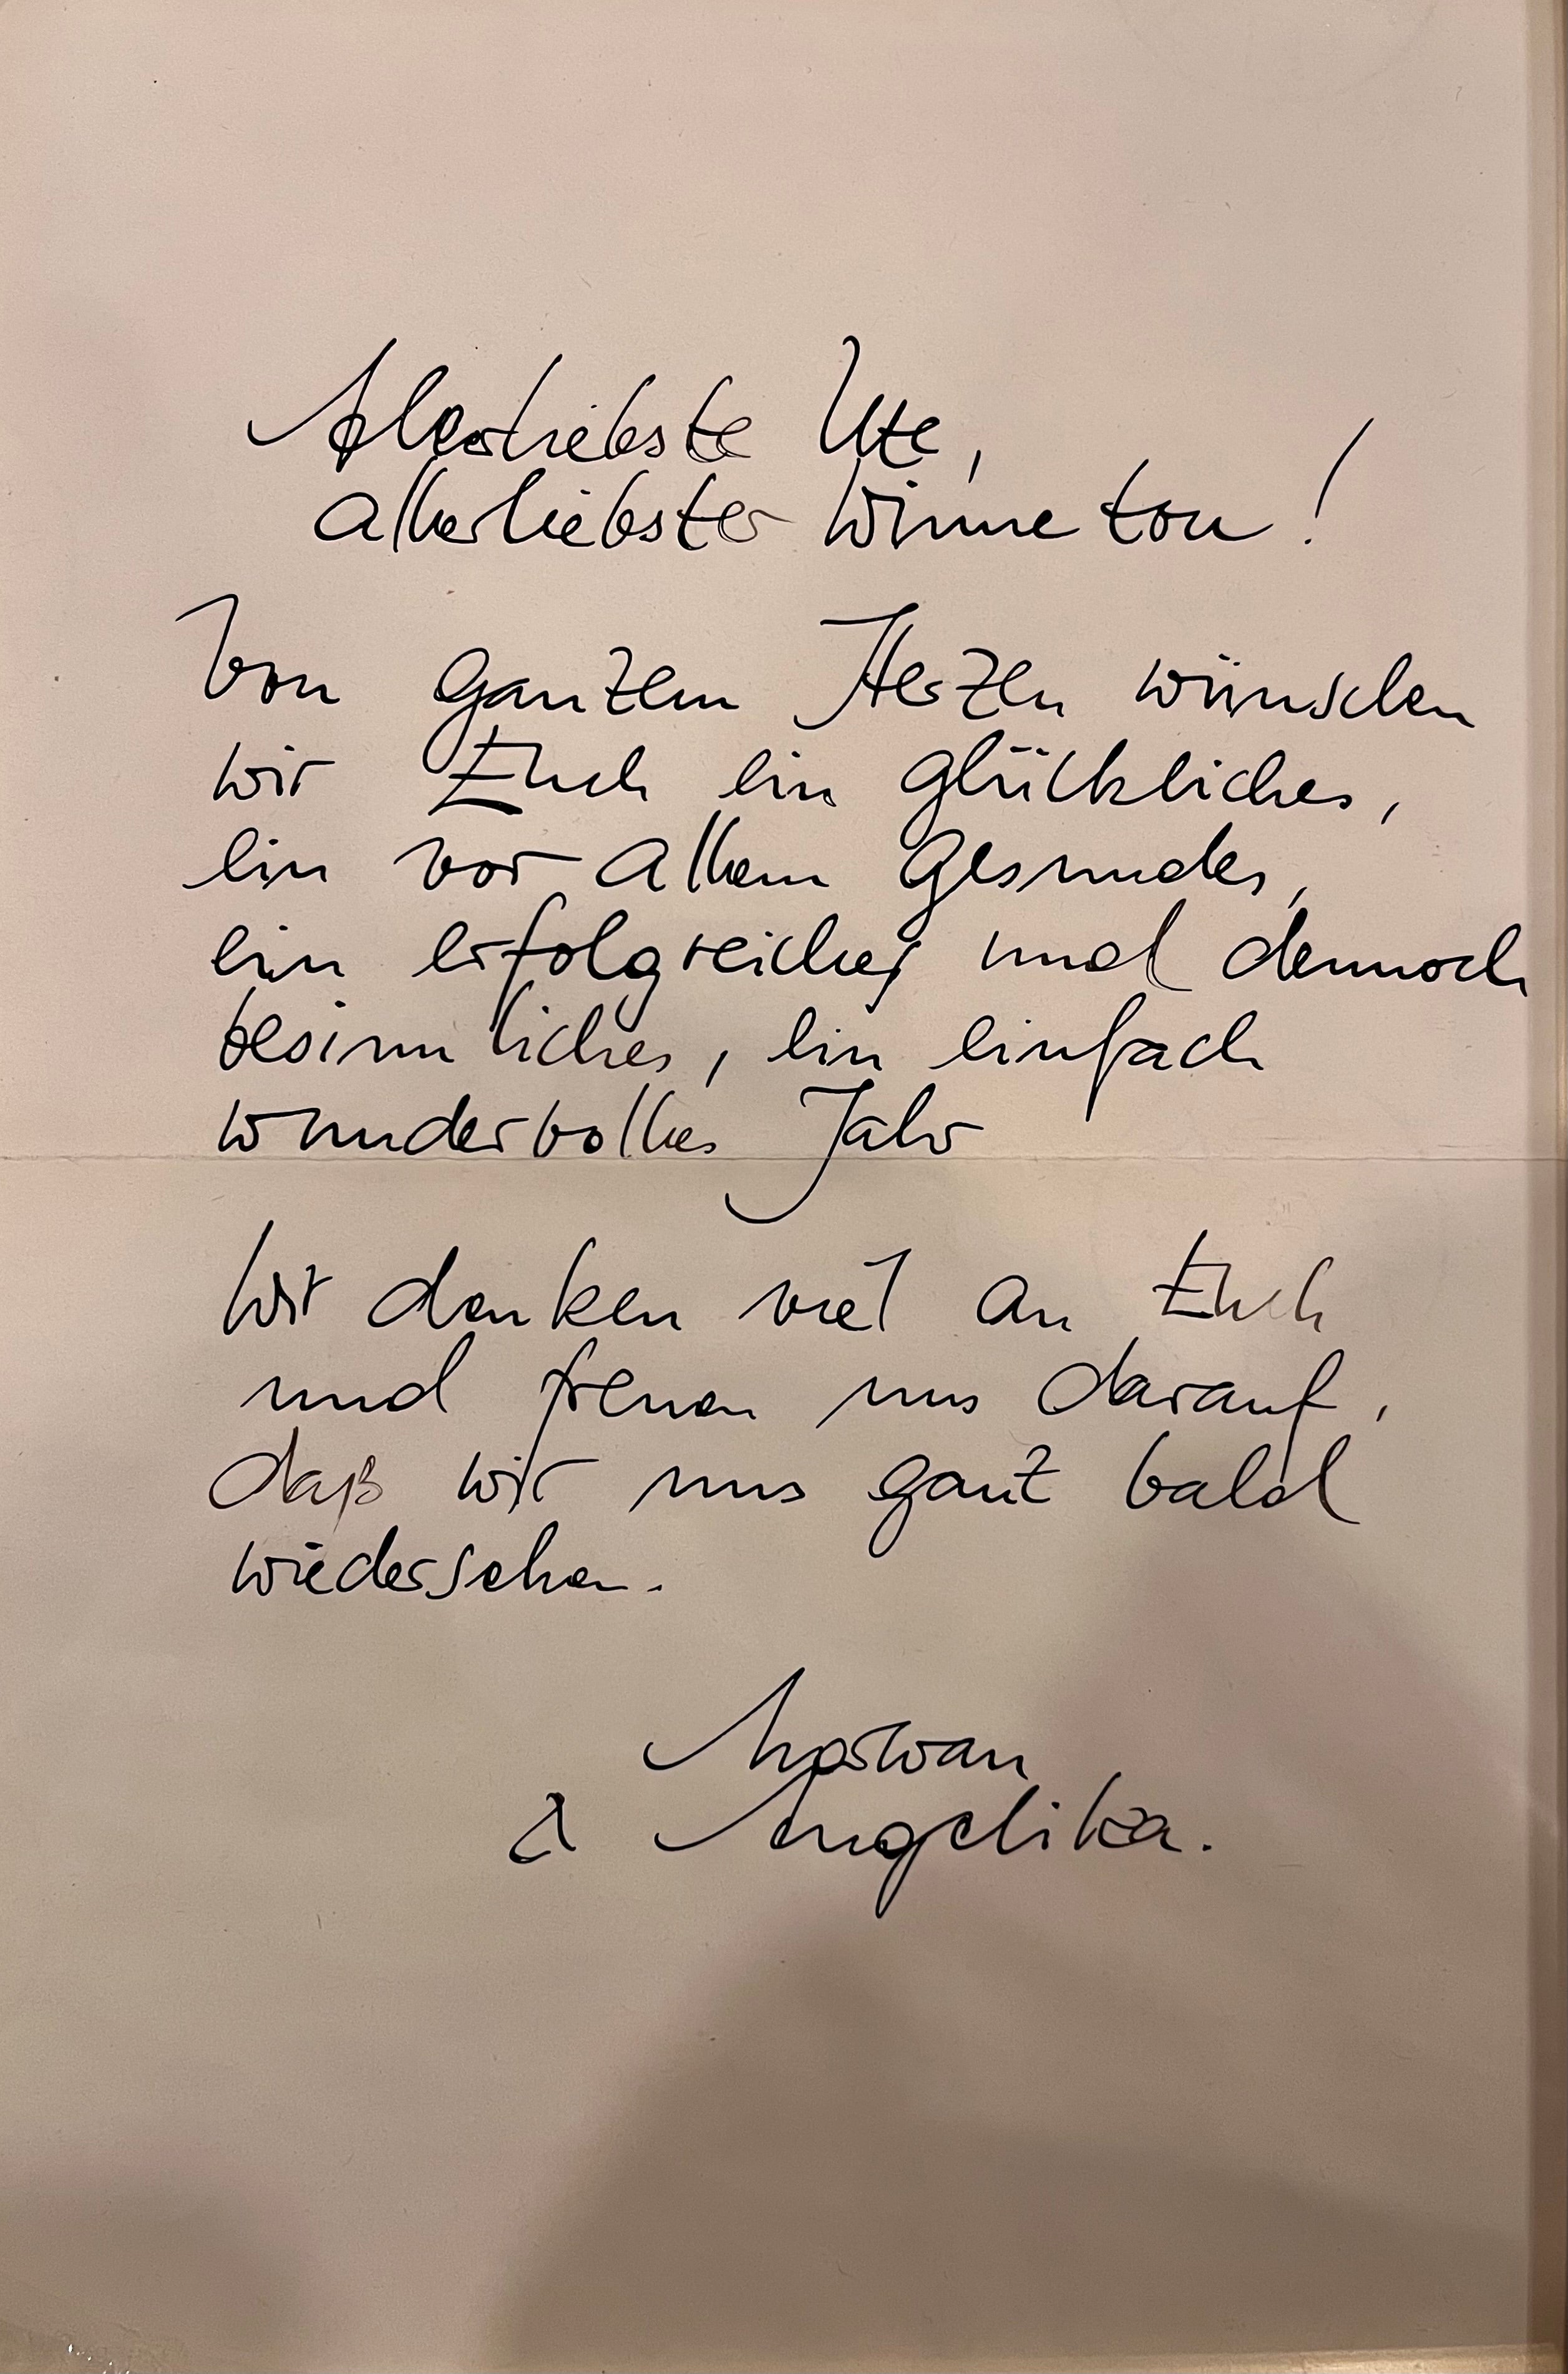 Allerliebste Ute,
allerliebster Winnetou!
Von ganzem Herzen wünschen
wir Euch ein glückliches,
ein vor allem gesundes,
ein erfolgreiches und dennoch
besinnliches, ein einfach
wundervolles Jahr
Wir denken viel an Euch
und freuen uns darauf,
daß wir uns ganz bald
wiedersehen.
Marwan
& Angelika.